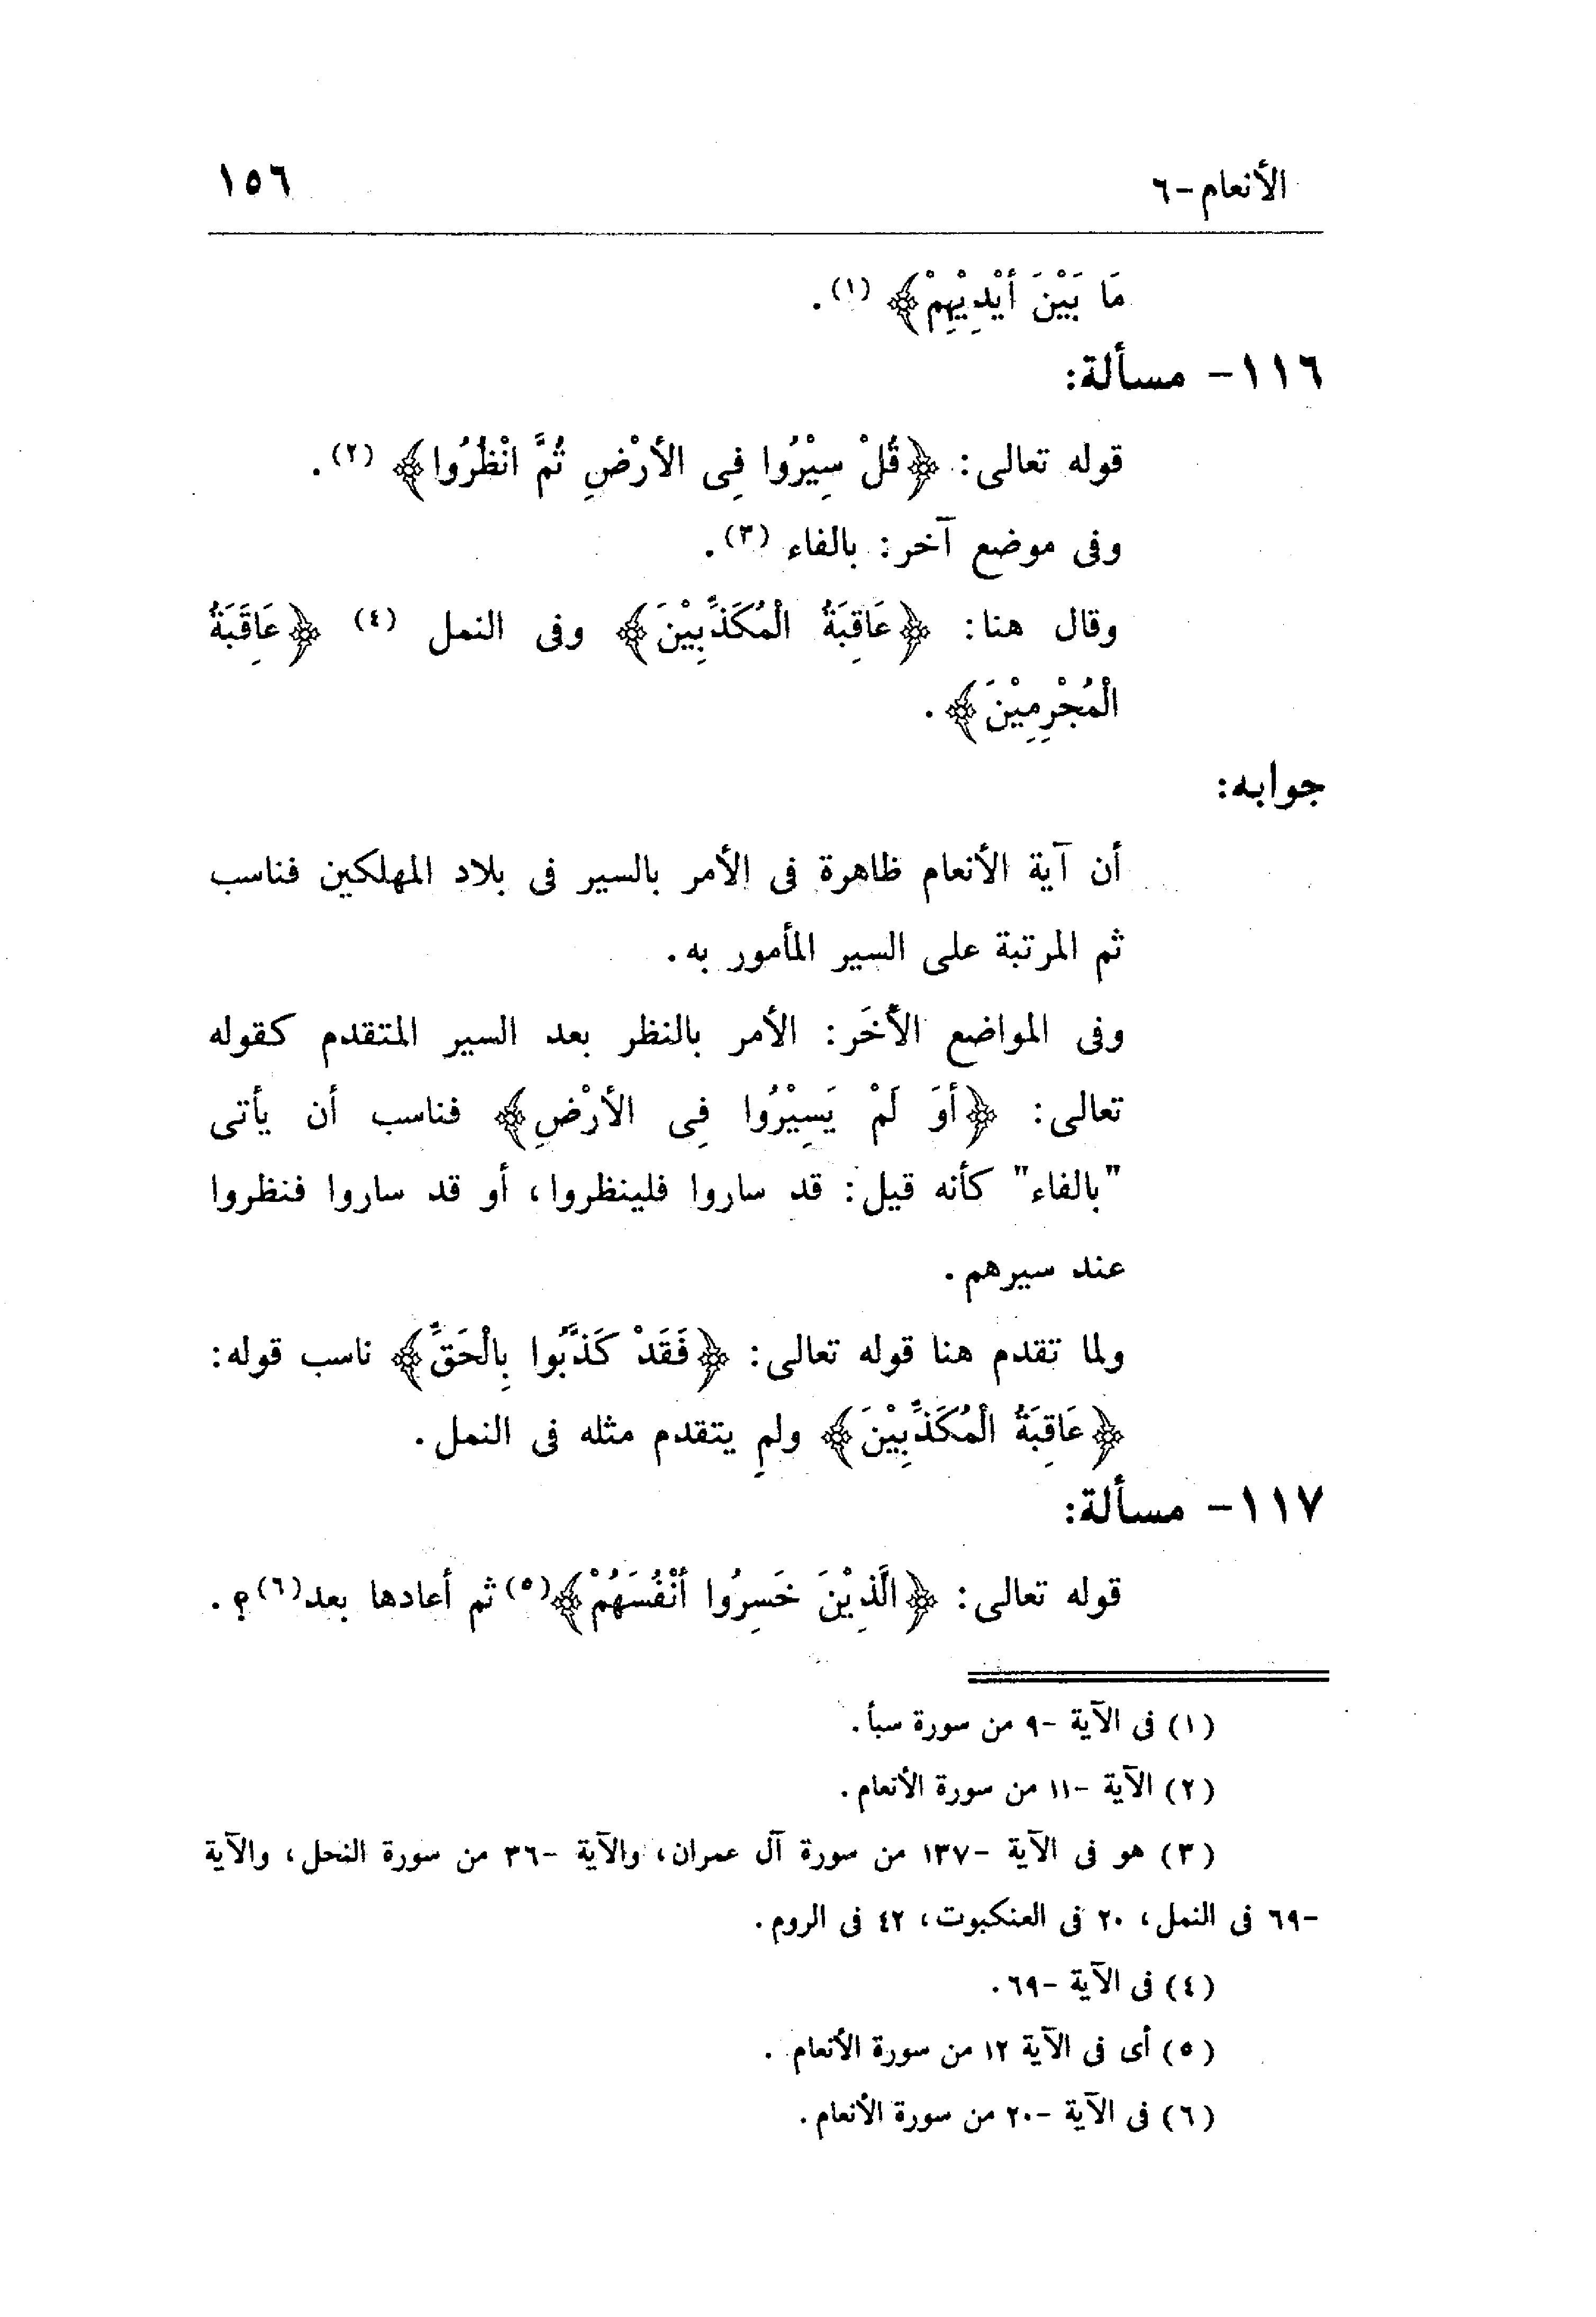 الأنعام-٦ ١٥٦
مَا بَيْنَ أَيْدِيْهِمْ﴾ (١).
١١٦- مسألة:
قوله تعالى: ﴿قُلْ سِيْرُوا فِى الأَرْضِ ثُمَّ انْظُرُوا﴾ (٢).
وفى موضع آخر: بالفاء (٣).
وقال هنا: ﴿عَاقِبَةُ الْمُكَذِّبِيْنَ﴾ وفى النمل (٤) ﴿عَاقِبَةُ
الْمُجْرِمِيْنَ﴾.
جوابه:
أن آية الأنعام ظاهرة فى الأمر بالسير فى بلاد المهلكين فناسب
ثم المرتبة على السير المأمور به.
وفى المواضع الأُخَر: الأمر بالنظر بعد السير المتقدم كقوله
تعالى: ﴿أَوَ لَمْ يَسِيْرُوا فِى الأَرْضِ﴾ فناسب أن يأتى
"بالفاء" كأنه قيل: قد ساروا فلينظروا، أو قد ساروا فنظروا
عند سيرهم.
ولما تقدم هنا قوله تعالى: ﴿فَقَدْ كَذَّبُوا بِالْحَقِّ﴾ ناسب قوله:
﴿عَاقِبَةُ الْمُكَذِّبِيْنَ﴾ ولم يتقدم مثله فى النمل.
١١٧- مسألة:
قوله تعالى: ﴿الَّذِيْنَ خَسِرُوا أَنْفُسَهُمْ﴾(٥) ثم أعادها بعد(٦)؟.
(١) فى الآية -٩ من سورة سبأ.
(٢) الآية -١١ من سورة الأنعام.
(٣) هو فى الآية -١٣٧ من سورة آل عمران، والآية -٣٦ من سورة النحل، والآية
-٦٩ فى النمل، ٢٠ فى العنكبوت، ٤٢ فى الروم.
(٤) فى الآية -٦٩.
(٥) أى فى الآية ١٢ من سورة الأنعام.
(٦) فى الآية -٢٠ من سورة الأنعام.